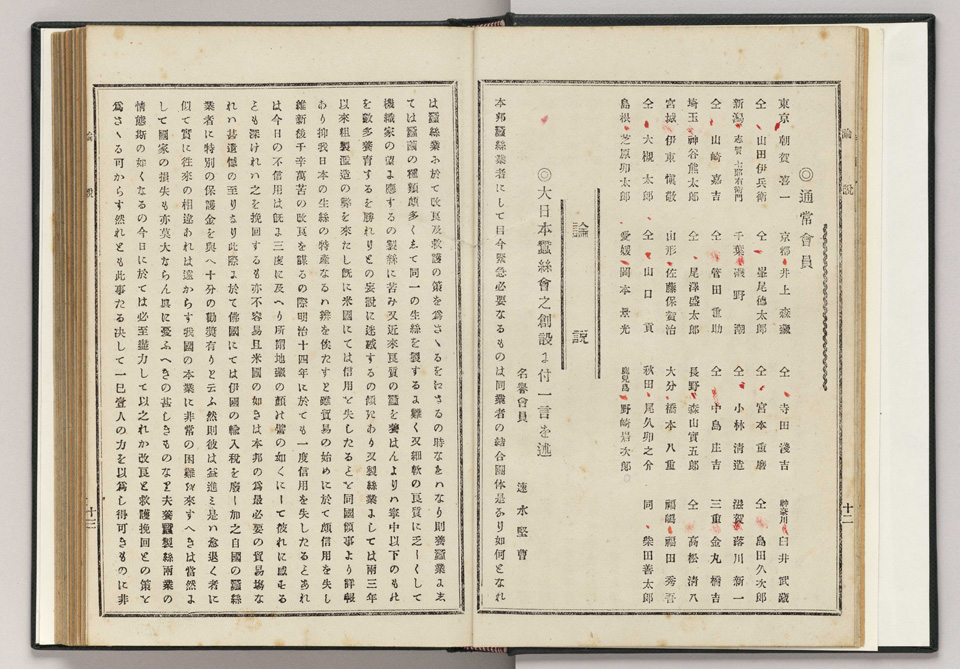 ◎通常會員
東京 朝賀喜一 京都 井上森藏 仝 寺田淺吉 神奈川 臼井武藏
仝 山田伊兵衛 仝 峯尾德太郎 仝 宮本重磨 仝 島田久次郎
新潟 志賀七郎右衛門 千葉 磯野潮 仝 小林清造 滋賀 蕗川新一
仝 山崎嘉吉 仝 管田重助 仝 中島庄吉 三重 金丸橘吉
埼玉 神谷熊太郎 仝 尾澤盛太郎 長野 森山實五郎 仝 高松清八
宮城 伊東愼敬 山形 佐藤保賀治 大分 橋本八重 福嶋 福田秀吾
仝 大槻太郎 仝 山口貢 秋田 尾久卯之介 同 柴田善太郎
島根 芝原卯太郎 愛媛 岡本景光 鹿兒島 野崎岩次郎
論說
◎大日本蠶絲會之創設ょ付一言を述
名譽會員 速水堅曹
本邦蠶絲業者にして目今緊急必要なるものは同業者の結合團体是あり如何となれ
十二
論說
は蠶絲業ふ於て改良及救護の策を爲さゝるをむさるの時なきハなり則養蠶業ょ
ては蠶繭の種類頗多くして同一の生絲を製するょ難く又細軟の良質に乏ーくして
機織家の望ょ應するの製絲に苦み又近來良質の蠶を養はんよりハ寧中以下のもの
を數多養育するを勝れりとの妄說に迷惑するの傾ハあり又製絲業ょしては兩三年
以來粗製濫造の弊を來たし旣に米國にては信用を失したると同國領事より詳報
あり抑我日本の生絲の特產なるハ辨を俟たすと雖貿易の始めに於て頗信用を失し
維新後千辛萬苦の改良を謀るの際明治十四年に於ても一度信用を失したるとあれ
は今日の不信用は旣ょ三度に及へり所謂地藏の顏ハ譬の如くにーて彼れに感する
とも深けれハ之を挽回するも亦不容易且米國の如きは本邦の爲最必要の貿易塲な
れハ甚遺憾の至りなり此際ょ於て佛國にては伊國の輸入税を廢ー加之自國の蠶絲
業者に特別の保護金を與へ十分の勸奬有りと云ふ然則彼は益進ミ是ハ愈退く者に
似て實に往來の相違あれは遠からす我國の本業に非常の困難を來すへきは當然ょ
して國家の損失も亦莫大ならん眞に憂ふへきの甚しきものなり夫養蠶製絲兩業の
情態斯の如くなるの今日に於ては必至盡力して以之れか改良と救護挽回との策を
爲さゝる可からす然れとも此事たる決して一巳壹人の力を以爲し得可きものに非
論說
十三